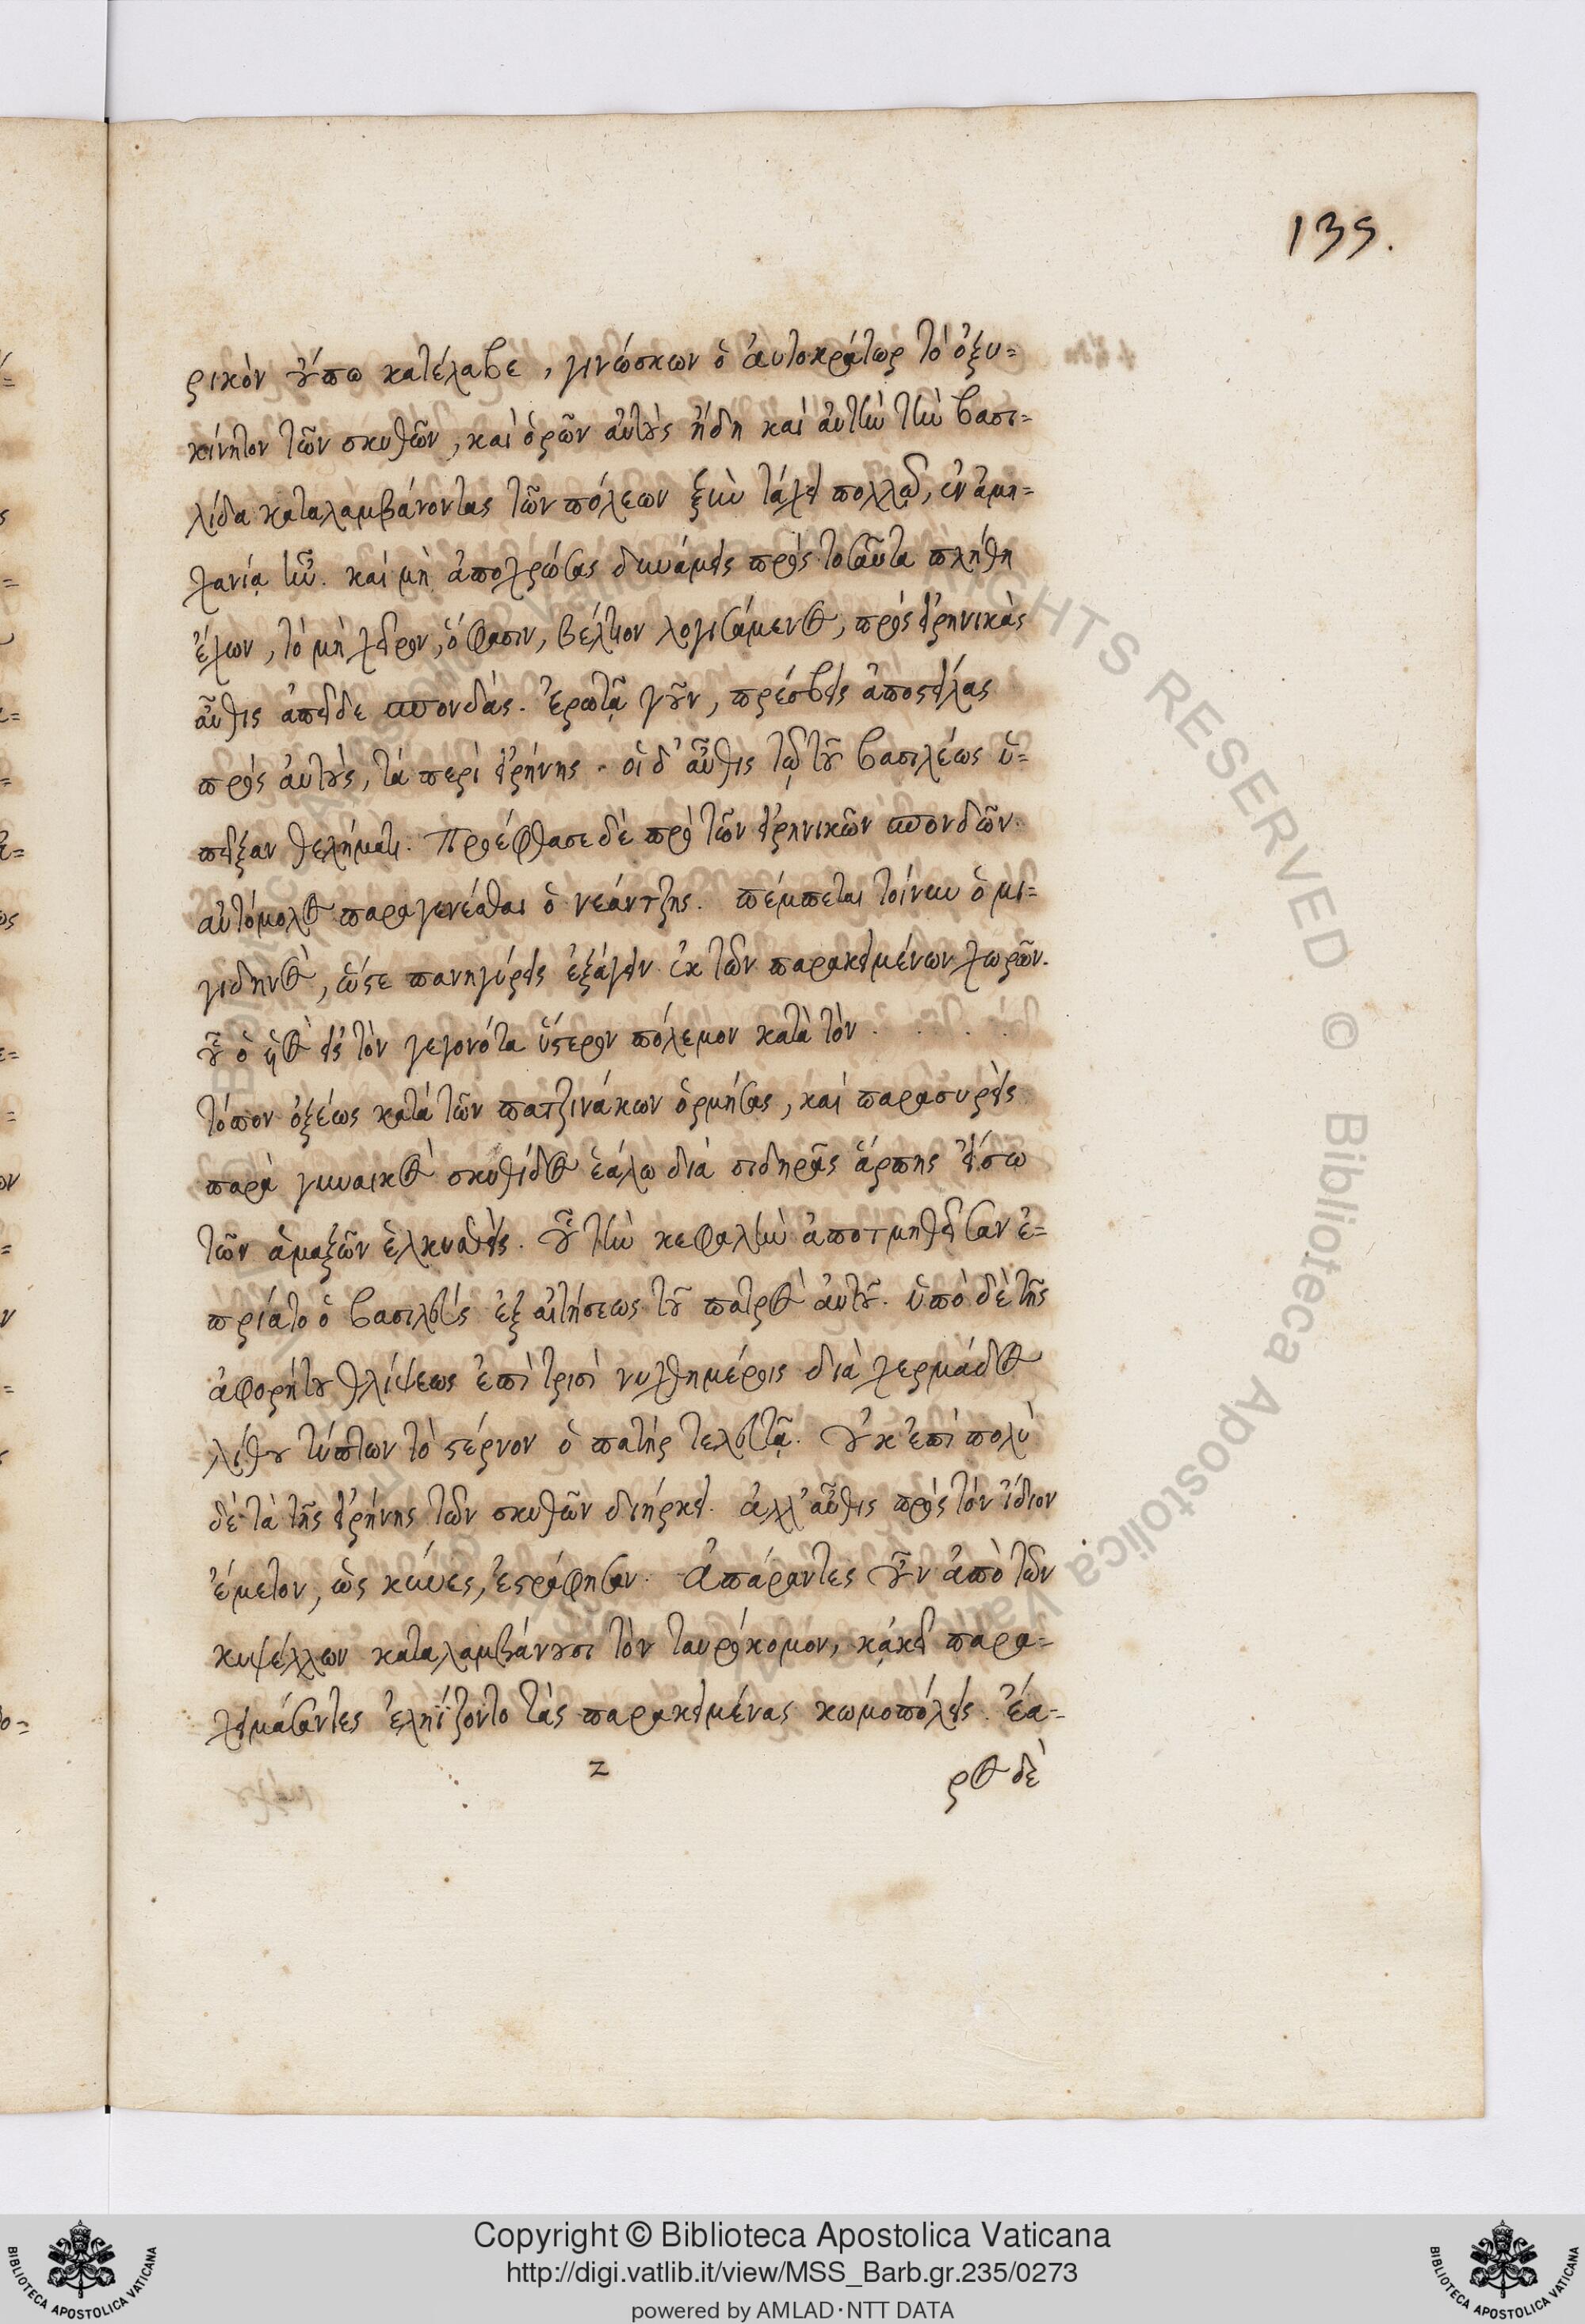 135.
ρικὸν οὔπω κατέλαβε, γινώσκων ὁ αὐτοκράτωρ τὸ ὀξυ=
κίνητον τῶν σκυθῶν, καὶ ὁρῶν αὐτοὺς ἤδη καὶ αὐτὴν τὴν βασι=
λίδα καταλαμβάνοντας τῶν πόλεων ξὺν τάχει πολλῷ, ἐν ἀμη=
χανίᾳ ἦν. καὶ μὴ ἀποχρώσας δυνάμεις πρὸς τοσαῦτα πλήθη
ἔχων, τὸ μὴ χεῖρον, ὅ φασιν, βέλτιον λογισάμενος, πρὸς εἰρηνικὰς
αὖθις ἀπεῖδε σπονδάς. Ἐρωτᾷ γοῦν, πρέσβεις ἀποστείλας
πρὸς αὐτοὺς, τὰ περὶ εἰρήνης. οἱ δ' αὖθις τῷ τοῦ βασιλέως ὑ=
πεῖξαν θελήματι. Προέφθασε δὲ πρὸ τῶν εἰρηνικῶν σπονδῶν
αὐτόμολος παραγενέσθαι ὁ νεάντζης. πέμπεται τοίνυν ὁ μι=
γιδηνὸς, ὥστε πανηγύρεις ἐξάγειν ἐκ τῶν παρακειμένων χωρῶν.
οὗ ὁ υἱὸς εἰς τὸν γεγονότα ὕστερον πόλεμον κατὰ τὸν . . . .
τόπον ὀξέως κατὰ τῶν πατζινάκων ὁρμήσας, καὶ παρασυρεὶς
παρὰ γυναικὸς σκυθίδος ἑάλω διὰ σιδηρᾶς ἅρπης εἴσω
τῶν ἁμαξῶν ἑλκυσθείς. οὗ τὴν κεφαλὴν ἀποτμηθεῖσαν ἐ=
πρίατο ὁ βασιλεὺς ἐξ αἰτήσεως τοῦ πατρὸς αὐτοῦ. ὑπὸ δὲ τῆς
ἀφορήτου θλίψεως ἐπὶ τρισὶ νυχθημέροις διὰ χερμάδος
λίθου τύπτων τὸ στέρνον ὁ πατὴρ τελευτᾷ. οὐκ ἐπὶ πολὺ
δὲ τὰ τῆς εἰρήνης τῶν σκυθῶν διήρκει. ἀλλ' αὖθις πρὸς τὸν ἴδιον
ἔμετον, ὡς κύνες, ἐστράφησαν. Ἀπάραντες οὖν ἀπὸ τῶν
κυψέλλων καταλαμβάνουσι τὸν ταυρόκομον, κἀκεῖ παρα=
χειμάσαντες ἐληΐζοντο τὰς παρακειμένας κωμοπόλεις. Ἔα=
z
ρος δὲ
Copyright © Biblioteca Apostolica Vaticana
http://digi.vatlib.it/view/MSS_Barb.gr.235/0273
powered by AMLAD·NTT DATA